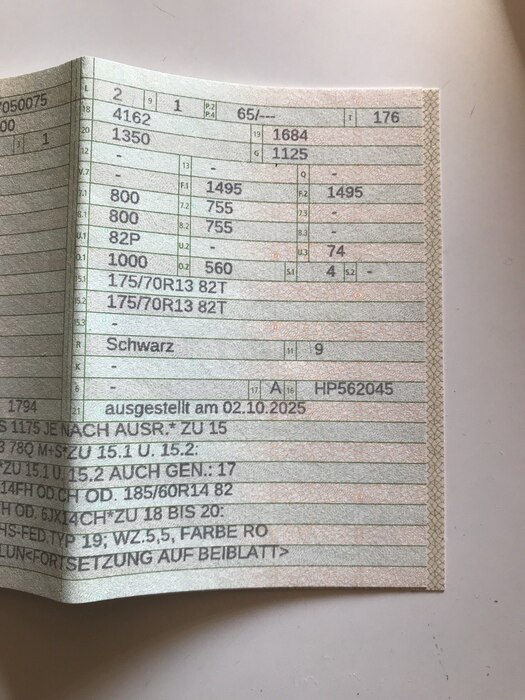 7050075 L 2 9 1 P.2 P.4 65/--- T 176
00 18 4162
1 20 1350 19 1684
12 - G 1125
V.7 - 13 - Q -
7.1 800 F.1 1495 F.2 1495
8.1 800 7.2 755 7.3 -
U.1 82P 8.2 755 8.3 -
O.1 1000 U.2 - U.3 74
O.2 560 S.1 4 S.2 -
15.1 175/70R13 82T
15.2 175/70R13 82T
15.3 -
R Schwarz 11 9
K -
6 - 17 A 16 HP562045
1794 21 ausgestellt am 02.10.2025
S 1175 JE NACH AUSR.* ZU 15
78Q M+S*ZU 15.1 U. 15.2:
*ZU 15.1 U. 15.2 AUCH GEN.: 17
14FH OD.CH OD. 185/60R14 82
H OD. 6JX14CH*ZU 18 BIS 20:
HS-FED.TYP 19; WZ.5,5, FARBE RO
LUN<FORTSETZUNG AUF BEIBLATT>